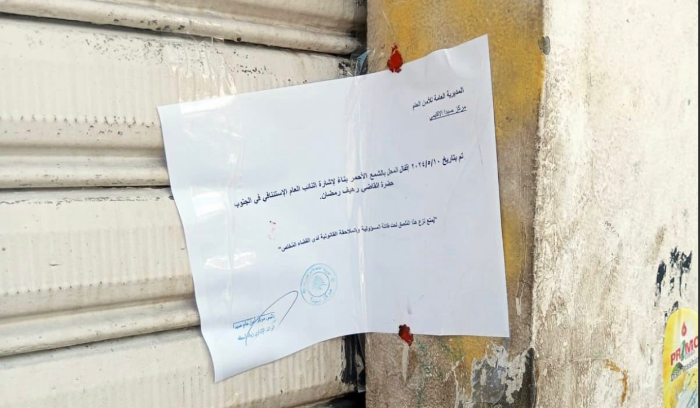 المديرية العامة للأمن العام
مركز صيدا الإقليمي
تم بتاريخ ٢٠٢٤/٥/١٠ إقفال المحل بالشمع الأحمر بناءً لإشارة النائب العام الإستئنافي في الجنوب
حضرة القاضي رهيف رمضان.
"يمنع نزع هذا الملصق تحت طائلة المسؤولية والملاحقة القانونية لدى القضاء المختص"
PRIMO